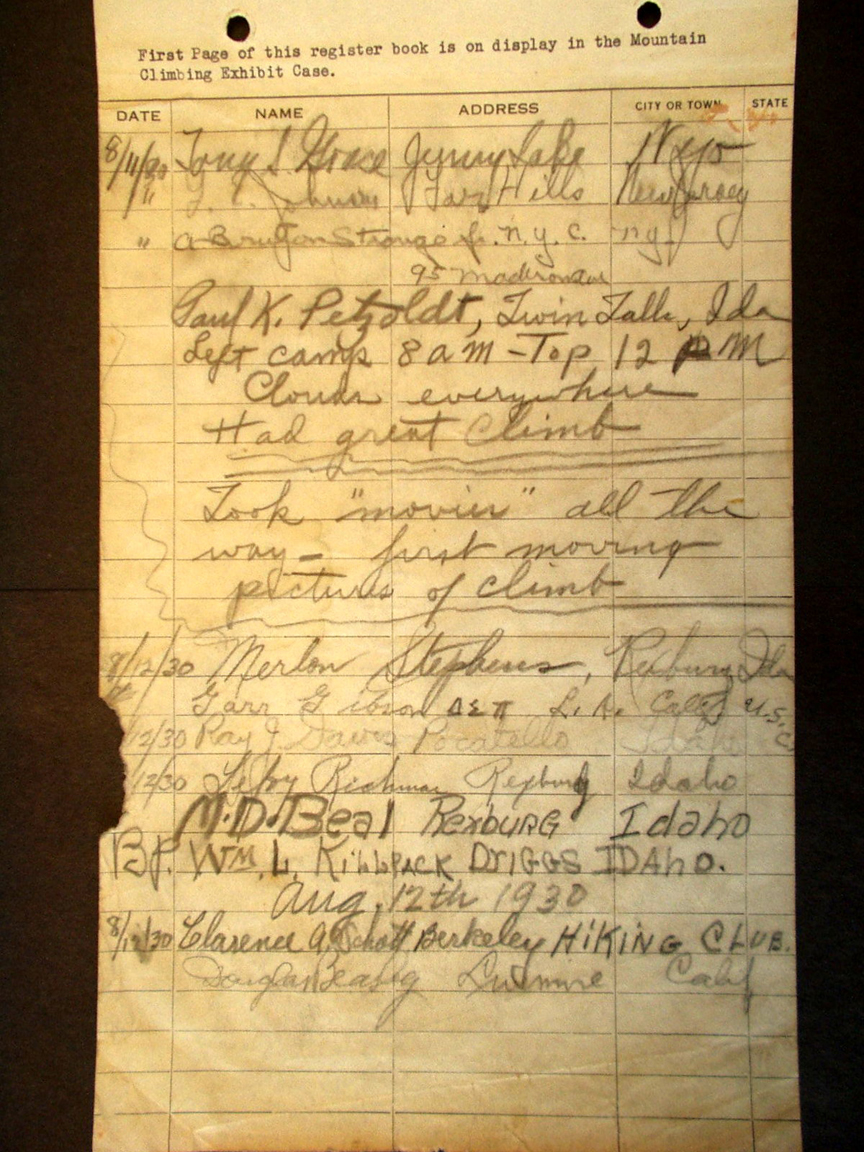 First Page of this register book is on display in the Mountain
Climbing Exhibit Case.
DATE NAME ADDRESS CITY OR TOWN STATE
8/11/30 Tony S. Grace Jenny Lake Wyo
" Johnson Far Hills New Jersey
" A Bruton Strange Jr. N.Y.C. N.Y.
95 Madison Ave
Paul K. Petzoldt, Twin Falls, Ida
Left camp 8 AM - Top 12 PM
Clouds everywhere
Had great climb
Took "movies" all the
way - first moving
pictures of climb
8/12/30 Merlon Stephens, Rexburg Ida
Garr Gibson ΔΣπ L.A. Calif U.S.C.
12/30 Ray J. Davis Pocatello Idaho
12/30 LeRoy Richman Rexburg Idaho
M.D. Beal Rexburg Idaho
WM. L. KILLPACK DRIGGS IDAHO.
Aug. 12th 1930
8/12/30 Clarence A. Schott Berkeley HIKING CLUB.
Douglas Calif